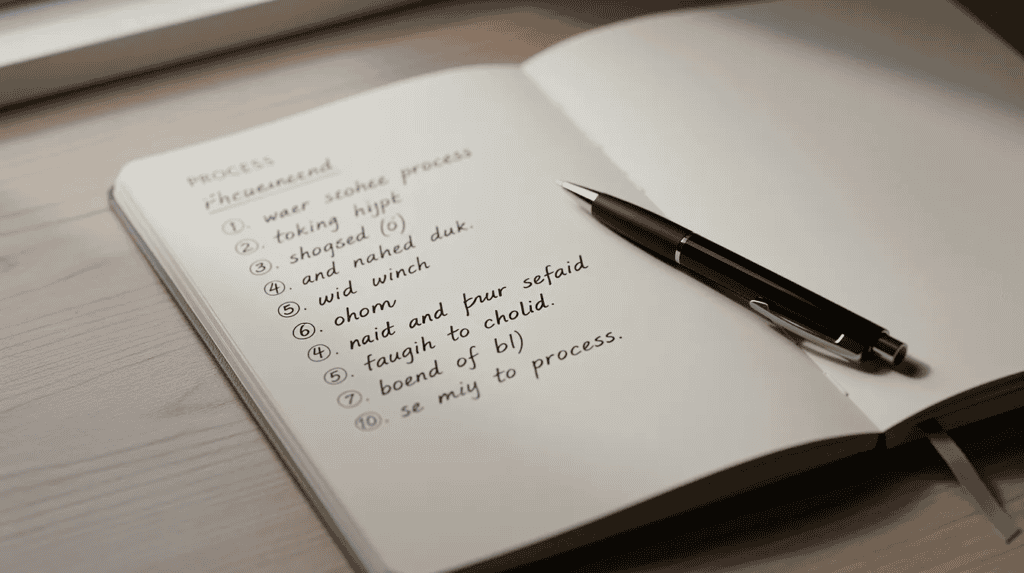 PROCESS
①. waer scohee process
②. toking hijpt
③. shogsed (o)
④. and nahed duk.
⑤. wid winch
⑥. ohom
④. naid and prur sefaid
⑤. faugih to cholid.
⑦. boend of bl)
⑩. se miy to process.